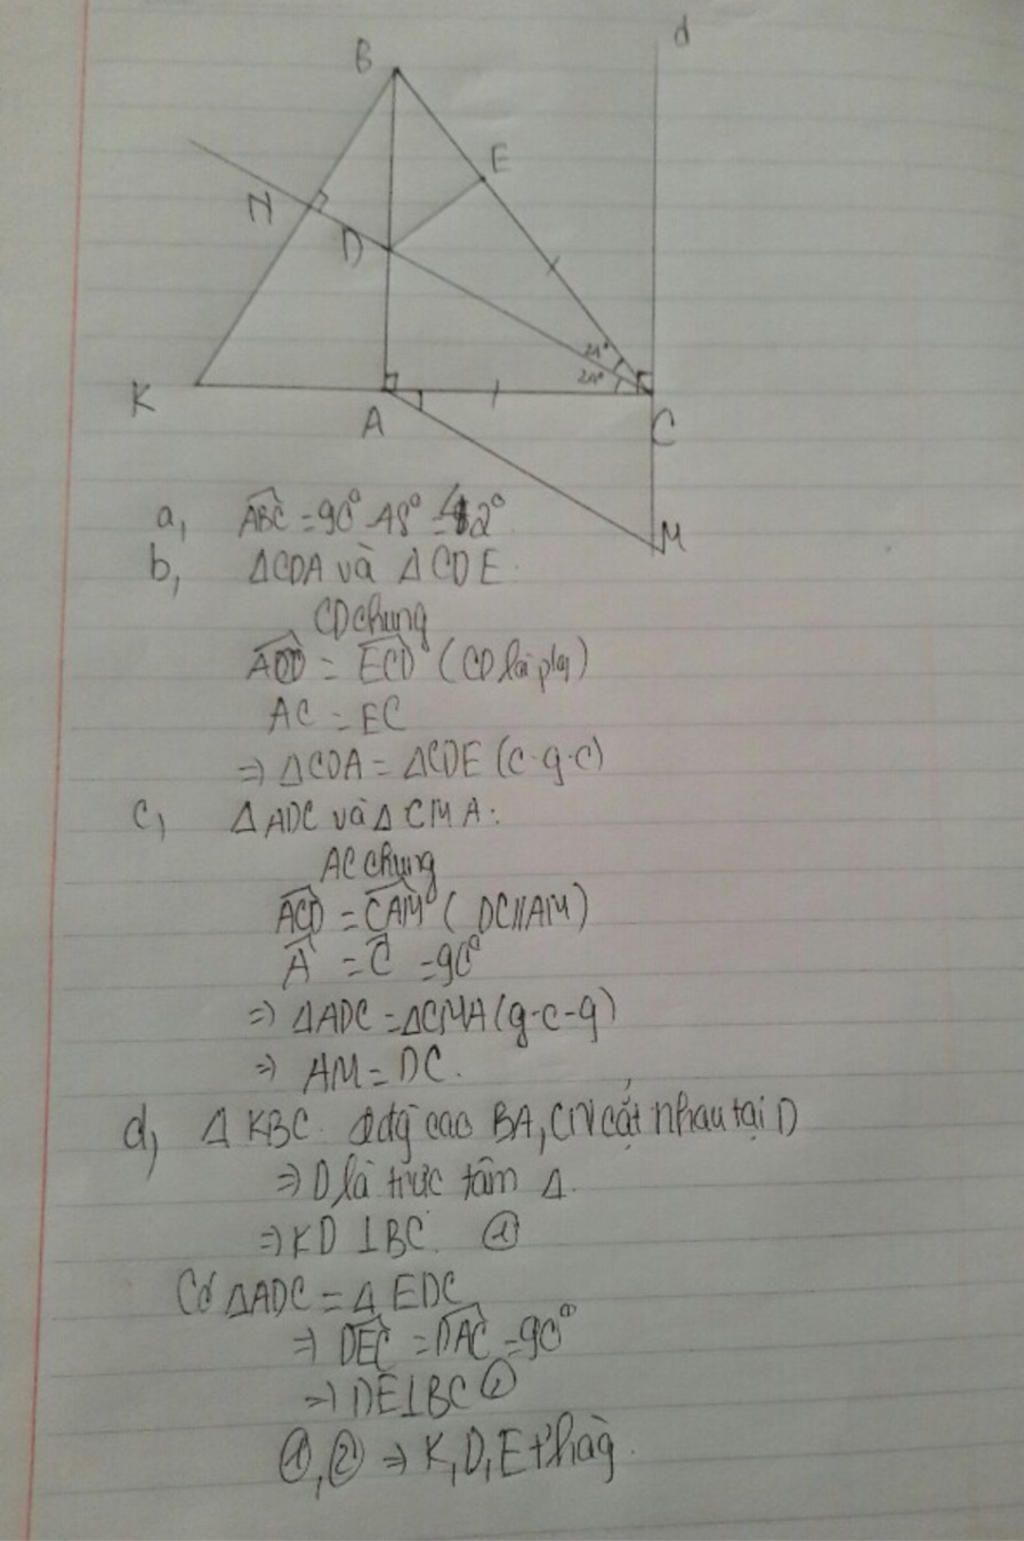 B
d
E
N
D
24°
24°
K
A
C
M
a, ABC = 90° - 48° = 42°
b, ΔCDA và ΔCDE.
CD chung
ACD = ECD (CD là p/g)
AC = EC
⇒ ΔCDA = ΔCDE (c.g.c)
c, ΔADC và ΔCMA:
AC chung
ACD = CAM (DC//AM)
A = C = 90°
⇒ ΔADC = ΔCMA (g-c-g)
⇒ AM = DC.
d, ΔKBC. 2 đg cao BA, CN cắt nhau tại D
⇒ D là trực tâm Δ.
⇒ KD ⊥ BC. ①
Có ΔADC = ΔEDC
⇒ DEC = DAC = 90°
⇒ DE ⊥ BC ②
①, ② ⇒ K, D, E thàg.